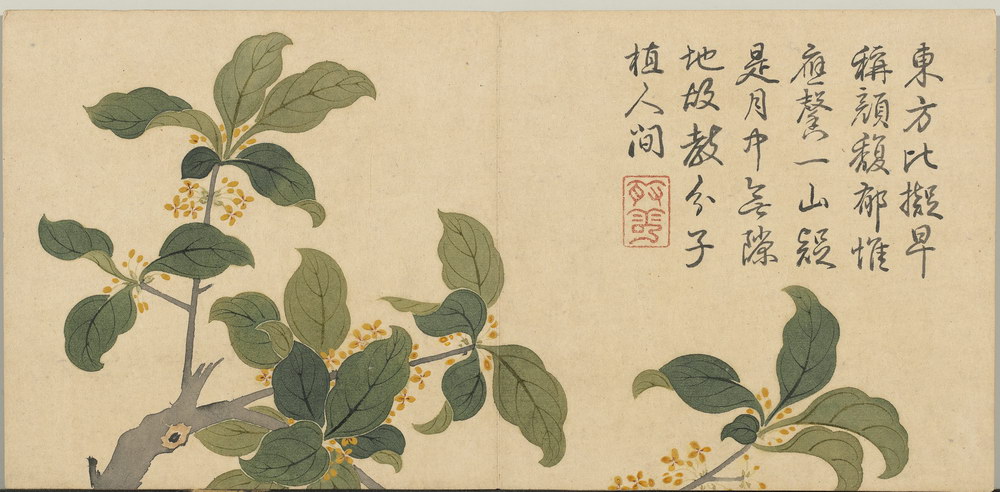 東方比擬早
稱顔馥郁惟
應馨一山疑
是月中無隙
地故教分子
植人间